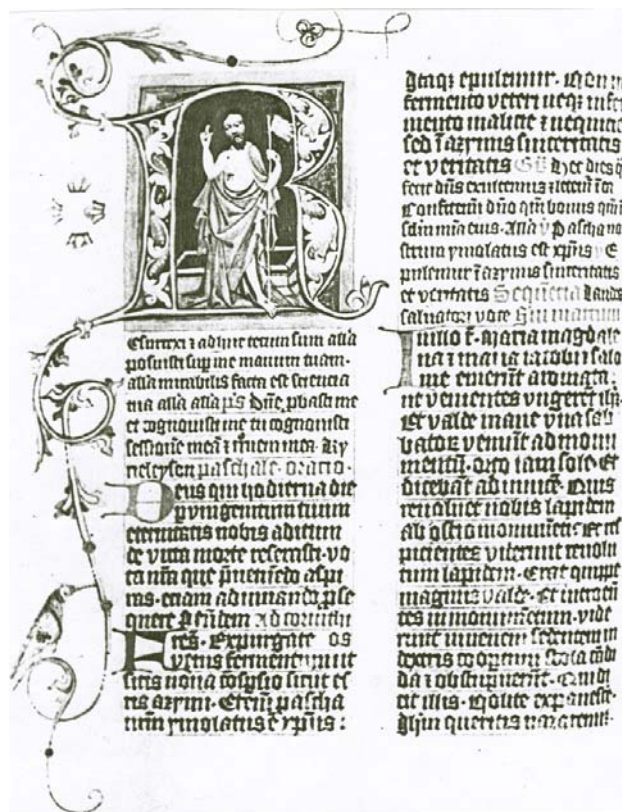 R
Esurrexi ⁊ adhuc tecum sum alla
posuisti sup me manum tuam.
alla mirabilis facta est sciencia
tua alla alla ps Dne pbasti me
et cognouisti me tu cognouisti
sessione meā ⁊ mea. Ky
rieleyson paschale. oratio.
Deus qui hodierna die
p vnigenitum tuum
eternitatis nobis aditum
de uicta morte reserasti. vo
ta nrā que pueniēdo aspi
ras. etiam adiuuando pse
quere p eudem ad corinthi
Fres. Expurgate
fermentum ut
sitis noua cōspsio sicut es
tis azymi. Etem pascha
nrm ymolatus ē xpus :
itaqz epulemur. Non in
fermento veteri neqz in fer
mento malicie ⁊ nequicie
sed ī azymis sinceritatis
et veritatis Hec dies q
fecit dns exultemus ⁊ letem ī ea
Confitemi dno qm bonus qm ī
sclm mia eius. Alla v Pascha no
strum ymolatus est xpus v E
pulemur ī azymis sinceritatis
et veritatis Sequētia laudes
saluatori voce
In illo t. Maria magdale
na ⁊ maria iacobi ⁊ salo
me emerūt aromata.
ut venientes vngeret ihm.
Et valde mane vna sab
batorz veniūt ad monu
mentū. orto iam sole. Et
dicebāt ad inuicē. Quis
reuoluet nobis lapidem
ab ostio monumēti. Et res
picientes viderunt reuolu
tum lapidem. Erat quippe
magnus valde. Et introeū
tes in monumētum. vide
runt iuuenem sedentem in
dextris coopertum stola cādi
da ⁊ obstupuerūt. Qui di
cit illis. Nolite expauesce.
ihm queritis nazarenū.